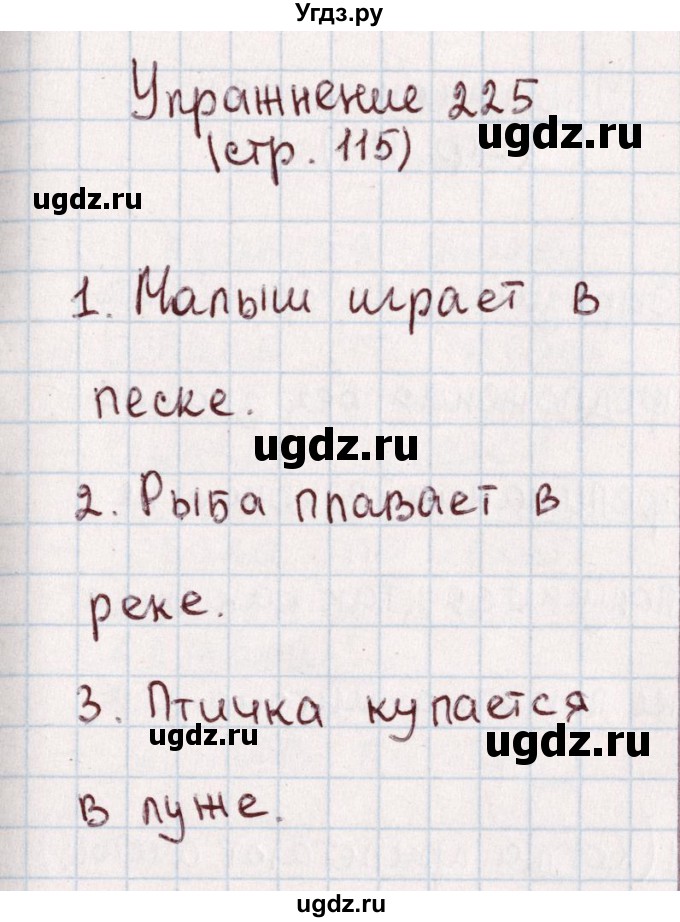 Угдз.ру
Упражнение 225
ugdz.ru
(стр. 115)
ugdz.ru
1. Малыш играет в
песке.
ugdz.ru
2. Рыба плавает в
реке.
3. Птичка купается
ugdz.ru
ugdz.ru
в луже.
ugdz.ru